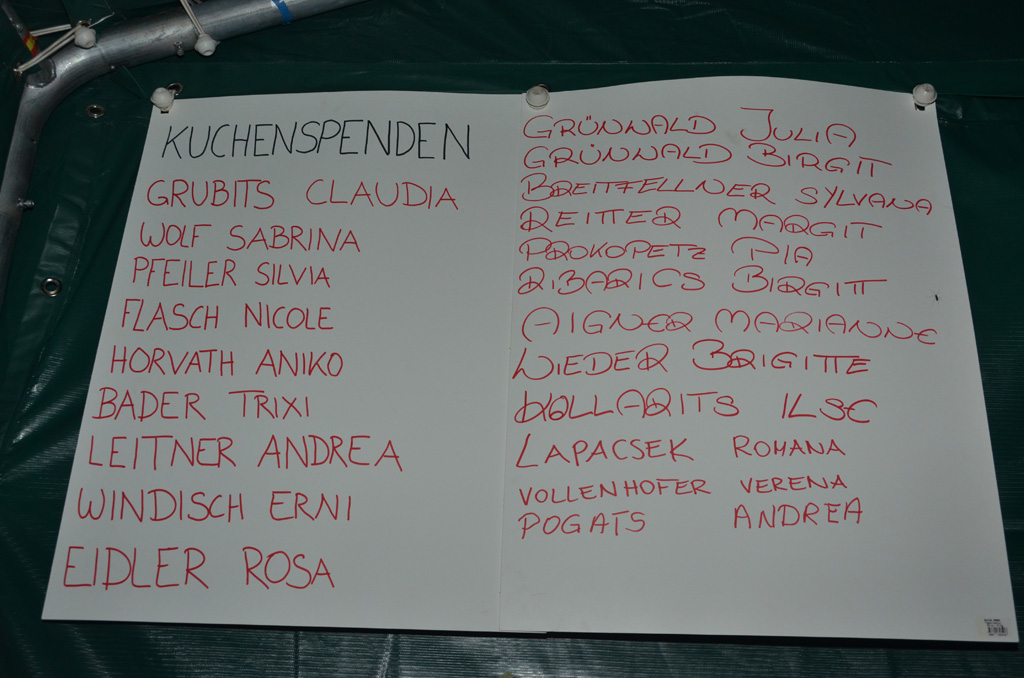 KUCHENSPENDEN
GRUBITS CLAUDIA
WOLF SABRINA
PFEILER SILVIA
FLASCH NICOLE
HORVATH ANIKO
BADER TRIXI
LEITNER ANDREA
WINDISCH ERNI
EIDLER ROSA
GRÜNWALD JULIA
GRÜNWALD BIRGIT
BREITFELLNER SYLVANA
REITTER MARGIT
PROKOPETZ PIA
RIBARICS BIRGITT
AIGNER MARIANNE
WIEDER BRIGITTE
KOLLARITS ILSE
LAPACSEK ROMANA
VOLLENHOFER VERENA
POGATS ANDREA